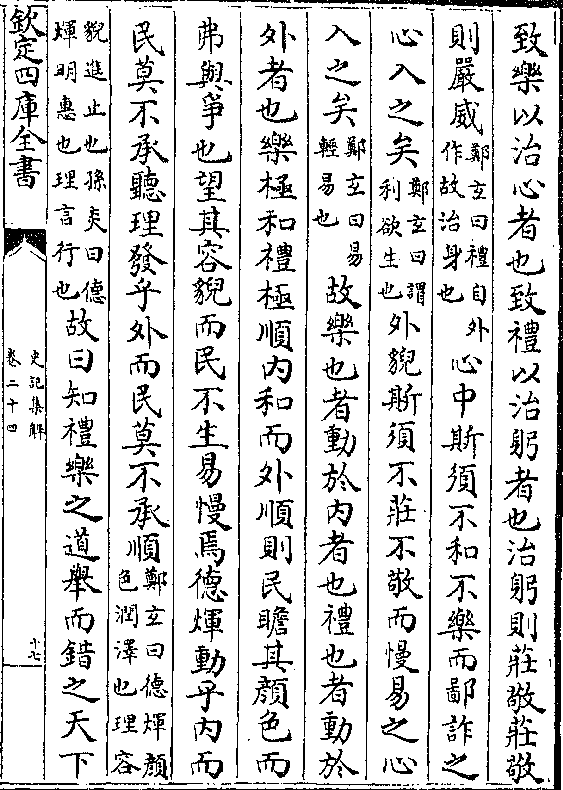 致樂以治心者也致禮以治躬者也治躬則莊敬莊敬
則嚴威鄭玄曰禮自外作故治身也心中斯須不和不樂而鄙詐之
心入之矣鄭玄曰謂利欲生也外貌斯須不莊不敬而慢易之心
入之矣鄭玄曰易輕易也故樂也者動於内者也禮也者動於
外者也樂極和禮極順内和而外順則民瞻其顔色而
弗與爭也望其容貌而民不生易慢焉德煇動乎内而
民莫不承聽理發乎外而民莫不承順鄭玄曰德煇顔色潤澤也理容
貌進止也孫炎曰德煇明惠也理言行也故曰知禮樂之道舉而錯之天下
欽定四庫全書
史記集解
卷二十四
十七